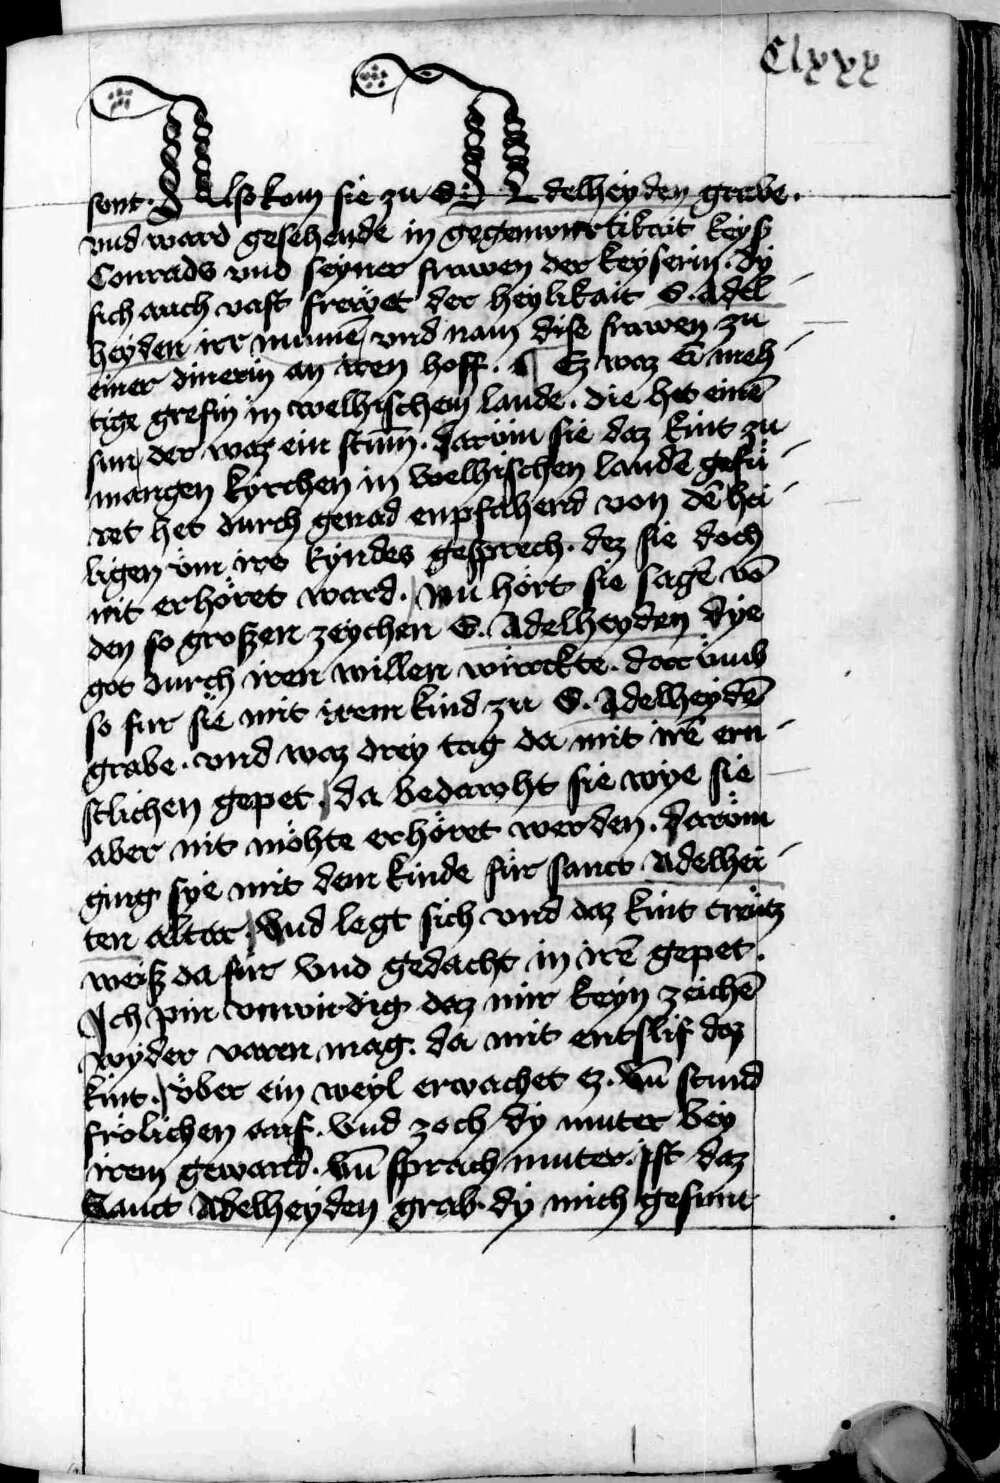 Clxxx
sont. Also kom sie zu S. Adelheyden grabe.
vnd ward gesehende in gegenwertikait keys
Conrads vnd seyner frawen der keyserin. dy
sich auch vast frewet der heylikait S. Adel
heyden irr mumē vnd nam dise frawen zu
einer dinerin an iren hoff. Ez waz ei͂ meh
tige grefin in welhischem lande. die het einē
sun der waz ein stum̄. darüm sie daz kint zu
mangen kyrchen in welhischen landē gefü
ret het durch genad enpfahend von dē hei
ligen üm irs kyndes gesprech. dez sie doch
nit erhöret ward. Nu hört sie sagē vō
den so groszen zeychen S. Adelheyden dye
got durch iren willen würckte. dorümb
so fur sie mit irem kind zu S. Adelheydē
grabe. vnd waz drey tag da mit irē ern
stlichen gepet. da bedawht sie wye sie
aber nit möhte erhöret werden. darüm
ging sye mit dem kinde für sanct Adelhei
ten altar. Vnd legt sich vnd daz kint creütz
weisz da für Vnd gedacht in irē gepet.
Ich pin vnwirdig daz mir keyn zeichē
wyder varen mag. da mit entslif daz
kint. über ein weyl erwachet ez. Vn̄ stund
frölichen auf. Vnd zoch dy muter bey
irem gewand. Vn̄ sprach muter. ist daz
Sanct Adelheyden grab. dy mich gesunt